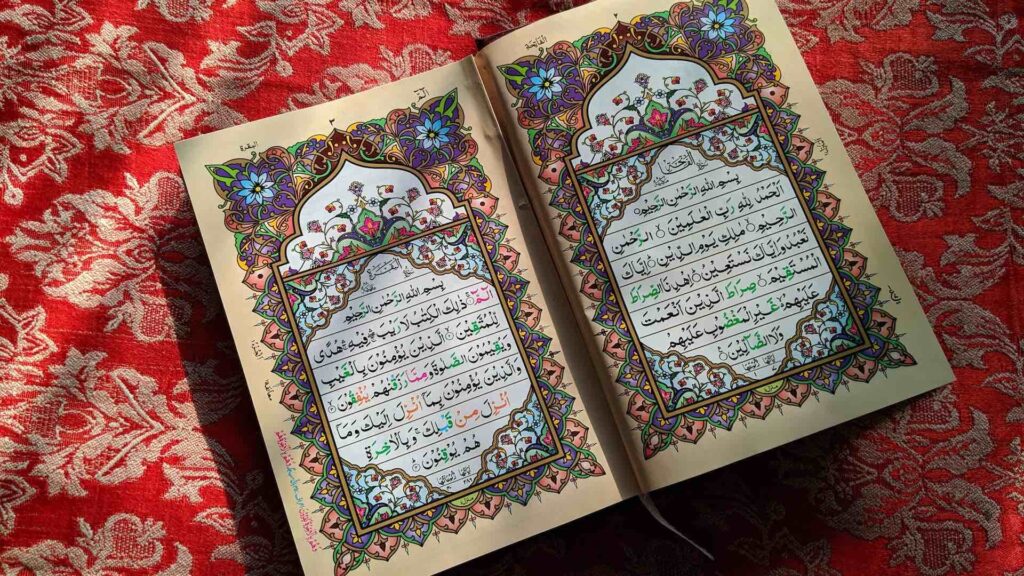 ٢
الفاتحة
بِسْمِ اللهِ الرَّحْمٰنِ الرَّحِيْمِ
اَلْحَمْدُ لِلّٰهِ رَبِّ الْعٰلَمِيْنَ ۙ الرَّحْمٰنِ
الرَّحِيْمِ ۙ مٰلِكِ يَوْمِ الدِّيْنِ ؕ اِيَّاكَ
نَعْبُدُ وَاِيَّاكَ نَسْتَعِيْنُ ؕ اِهْدِنَا الصِّرَاطَ
الْمُسْتَقِيْمَ ۙ صِرَاطَ الَّذِيْنَ اَنْعَمْتَ
عَلَيْهِمْ ۙ غَيْرِ الْمَغْضُوْبِ عَلَيْهِمْ
وَلَا الضَّآلِّيْنَ
الٓمّٓ
٣
البقرة
بِسْمِ اللهِ الرَّحْمٰنِ الرَّحِيْمِ
الٓمّٓ ۚ ذٰلِكَ الْكِتٰبُ لَا رَيْبَ ۛ فِيْهِ ۛ هُدًى
لِّلْمُتَّقِيْنَ ۙ الَّذِيْنَ يُؤْمِنُوْنَ بِالْغَيْبِ
وَيُقِيْمُوْنَ الصَّلٰوةَ وَمِمَّا رَزَقْنٰهُمْ يُنْفِقُوْنَ ۙ
وَالَّذِيْنَ يُؤْمِنُوْنَ بِمَآ اُنْزِلَ اِلَيْكَ وَمَآ
اُنْزِلَ مِنْ قَبْلِكَ ۚ وَبِالْاٰخِرَةِ
هُمْ يُوْقِنُوْنَ ؕ